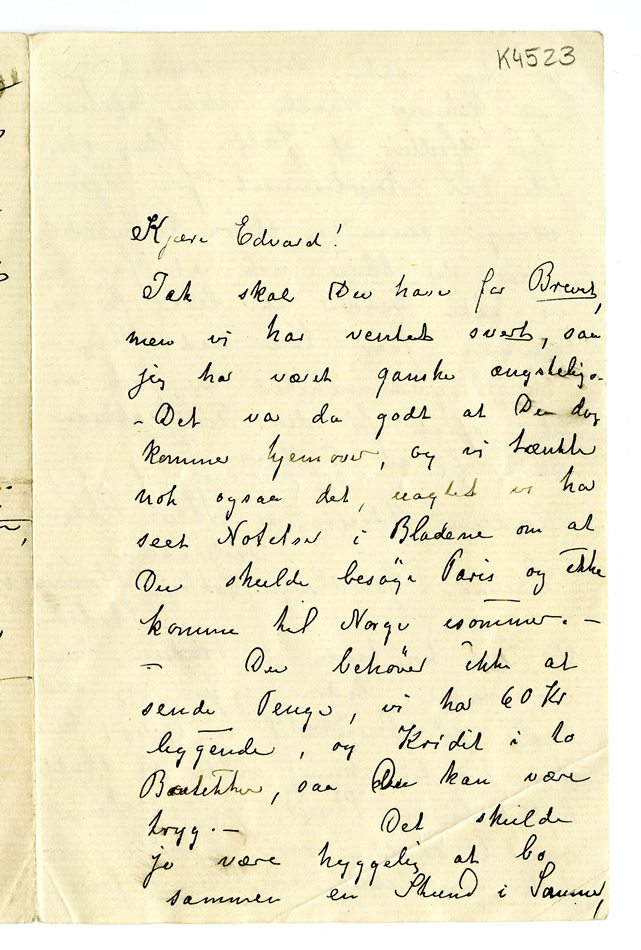 K4523
Kjære Edvard!
Tak skal Du have for Brevet,
men vi har ventet svert, saa
jeg har været ganske ængstelig.
– Det va da godt at Du dog
kommer hjemover, og vi tænkte
nok ogsaa det, uagtet vi ha
seet Notetser i Bladene om at
Du skulde besøge Paris og ikke
komme til Norge isommer. –
– Du behøver ikke at
sende Penge, vi har 60 Kr
liggende, og Kridit i to
Boutikker, saa Du kan være
tryg. – Det skulde
jo være hyggelig at bo
sammen en Stund i Sommer,